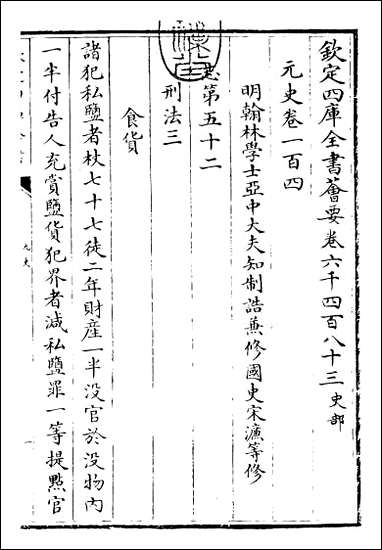 欽定四庫全書薈要卷六千四百八十三史部
元史卷一百四
明翰林學士亞中大夫知制誥兼修國史宋濂等修
志第五十二
刑法三
食貨
諸犯私鹽者杖七十七徒二年財産一半没官於没物内
一半付告人充賞鹽貨犯界者減私鹽罪一等提㸃官
元史